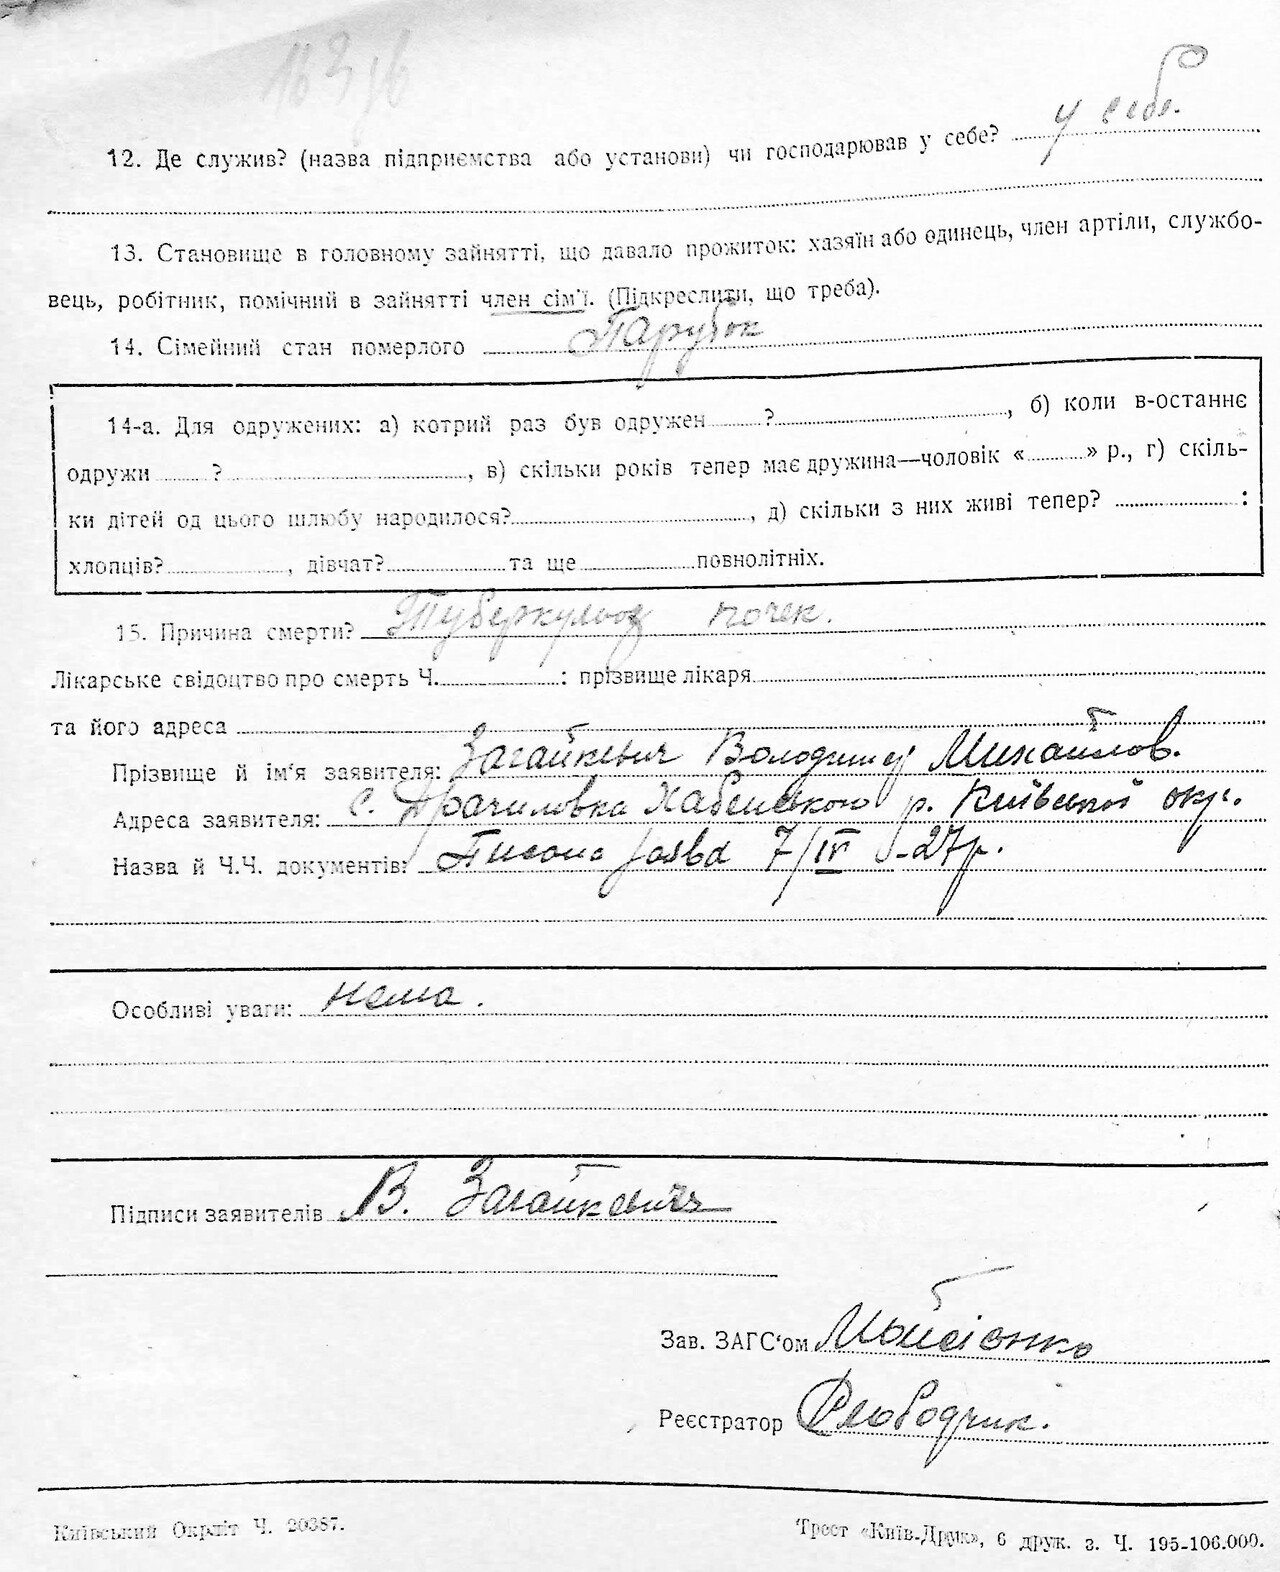 12. Де служив? (назва підприємства або установи) чи господарював у себе? у себе.
13. Становище в головному зайнятті, що давало прожиток: хазяїн або одинець, член артіли, службо-
вець, робітник, помічний в зайнятті член сім'ї. (Підкреслити, що треба).
14. Сімейний стан померлого Парубок
14-а. Для одружених: а) котрий раз був одружен ?, б) коли в-останнє
одружи ?, в) скільки років тепер має дружина—чоловік « » р., г) скіль-
ки дітей од цього шлюбу народилося?, д) скільки з них живі тепер? :
хлопців?, дівчат? та ще повнолітніх.
15. Причина смерти? Туберкульоз почек.
Лікарське свідоцтво про смерть Ч. : прізвище лікаря
та його адреса
Прізвище й ім'я заявителя: Загайкевич Володимир Михайлов.
Адреса заявителя: с. Драчиловка Хабенського р. Київської окр.
Назва й Ч.Ч. документів: заява 7/IV -27р.
Особливі уваги: нема.
Підписи заявителів В. Загайкевич
Зав. ЗАГС'ом
Реєстратор
Київський Окрліт Ч. 20387.
Трест «Київ-Друк», 6 друк. з. Ч. 195-106.000.